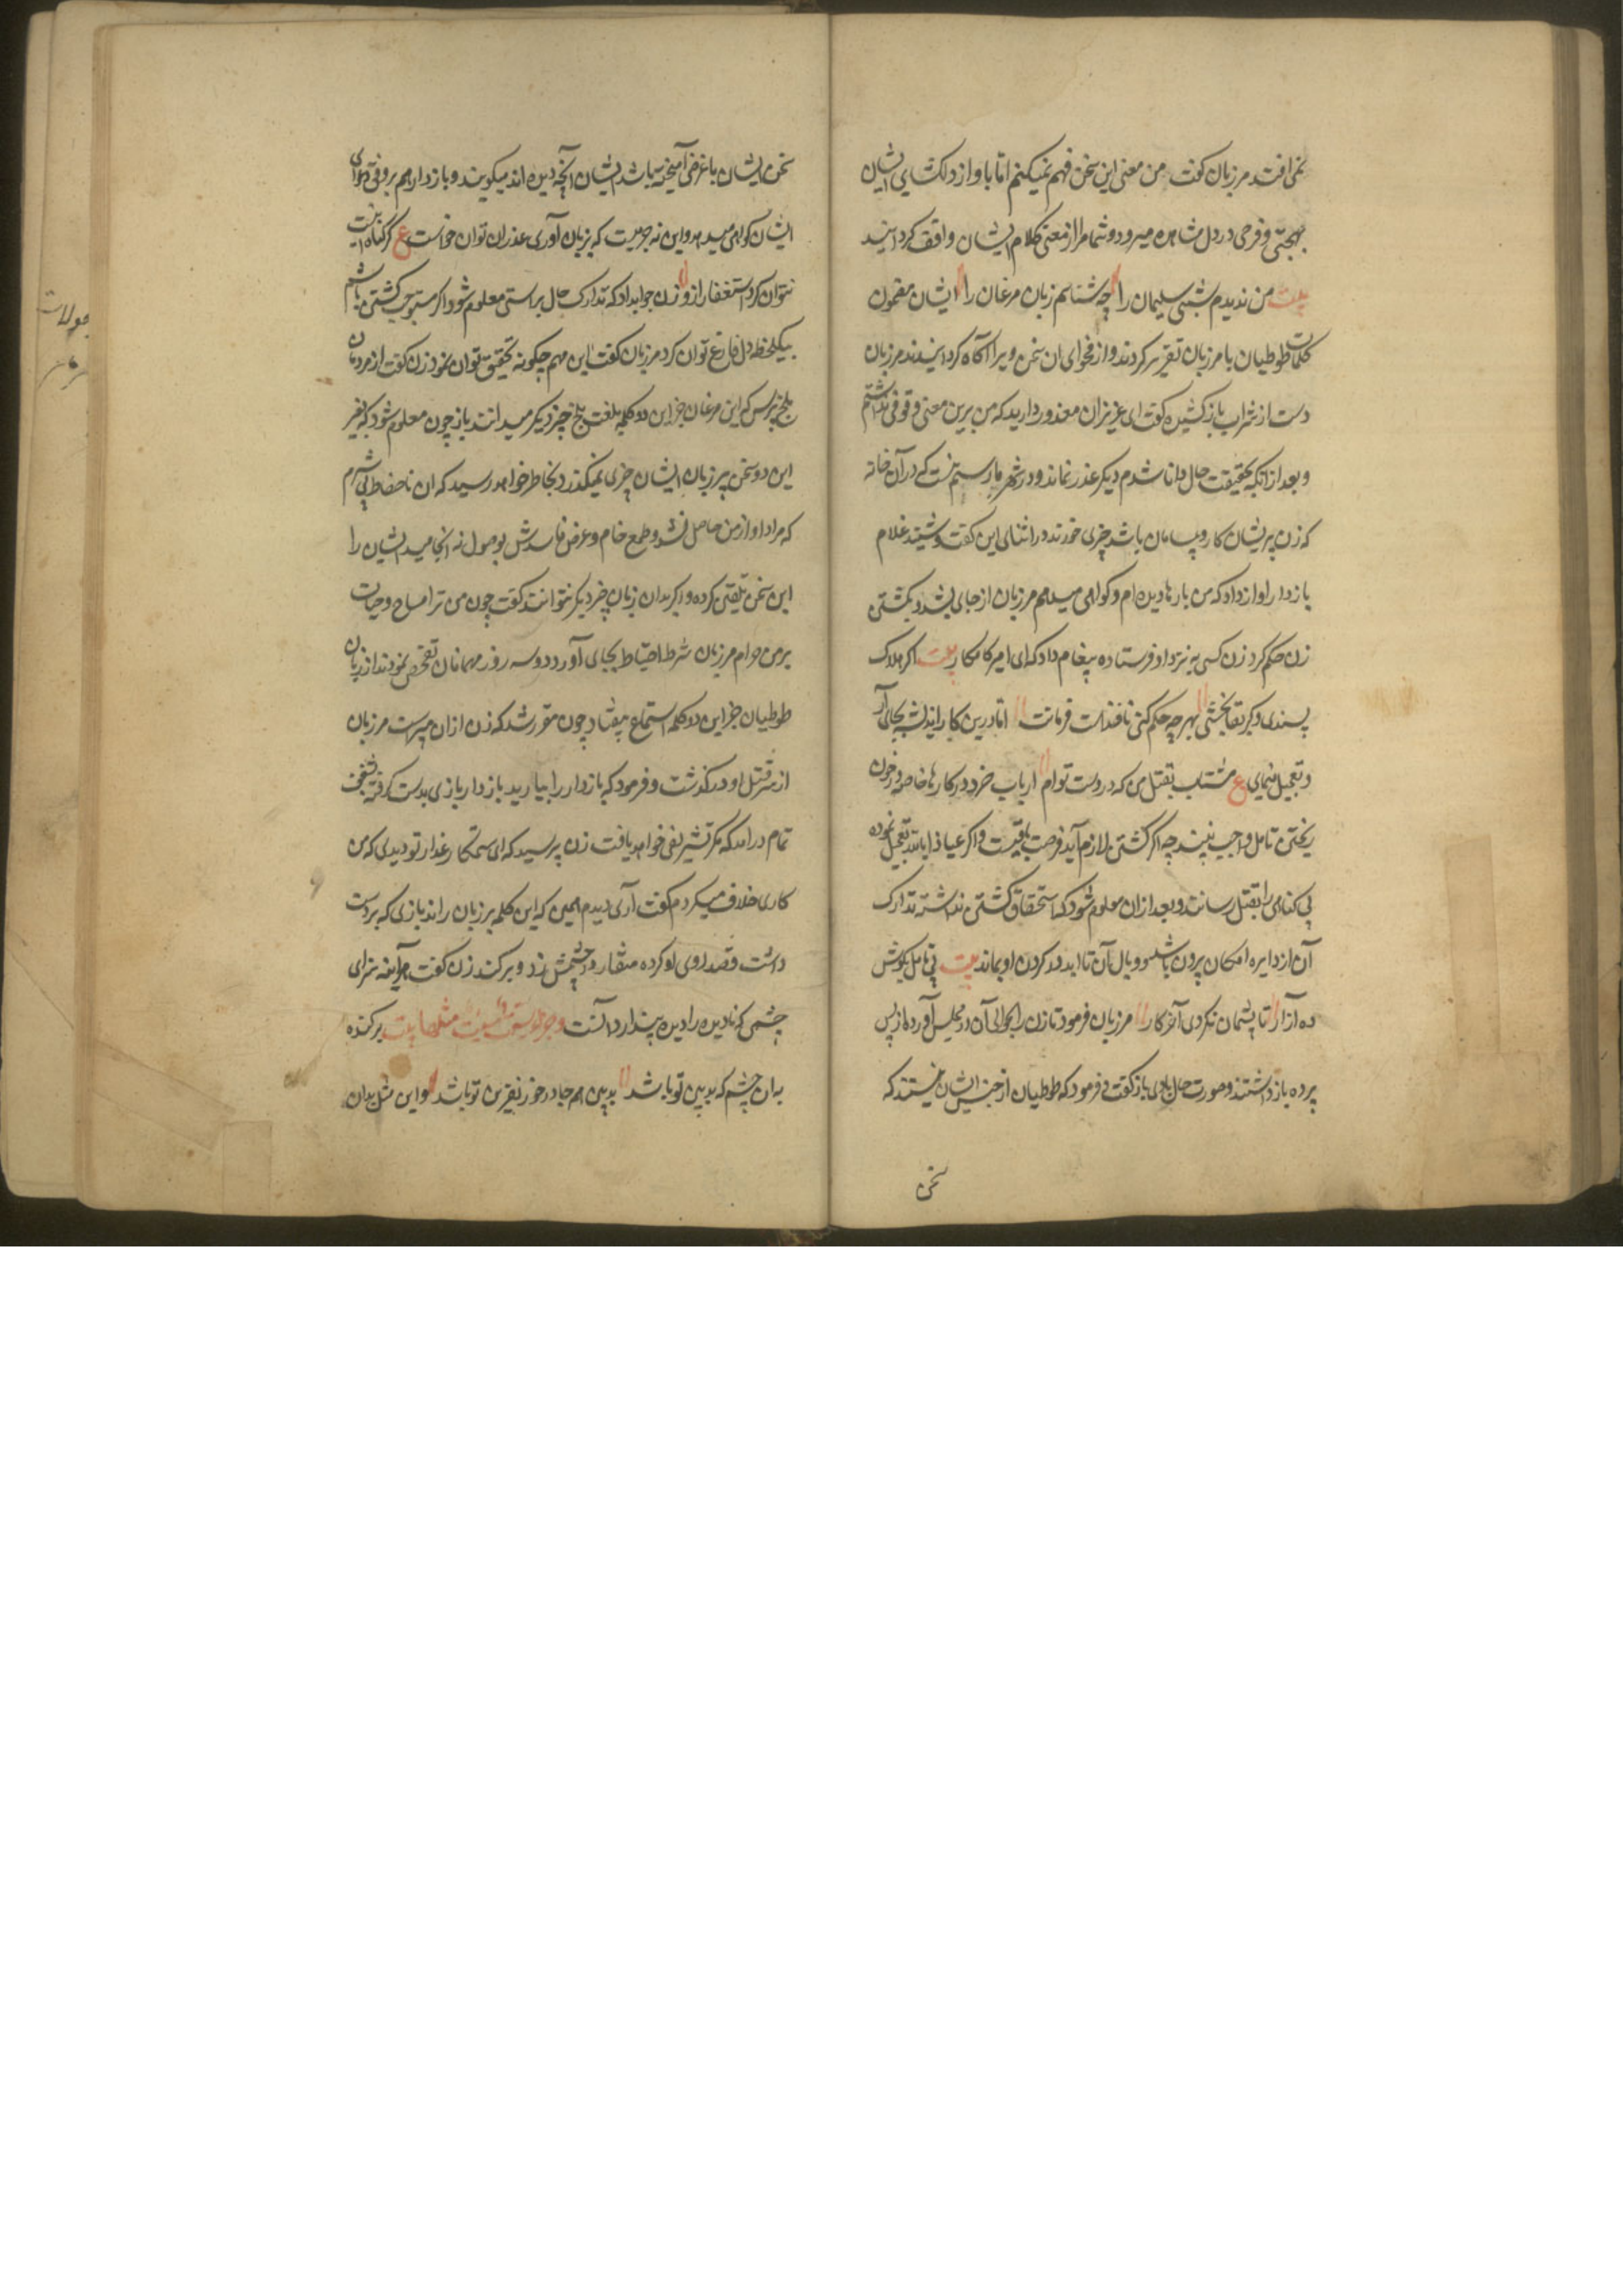 نمی افتد مرزبان گفت من معنی این سخن فهم نمیکنم اما باواز دلگشای ایشان
بهجتی و فرحی در دل مشاهده میرود و شما مرا از معنی کلام ایشان واقف گردانید
بیت من ندیدم شبی سلیمان را چه شناسم زبان مرغان را ایشان مضمون
کلمات طوطیان با مرزبان تقریر کردند و از فحوای ان سخن ویرا آگاه گردانیدند مرزبان
دست از شراب باز کشیده گفت ای عزیزان معذور دارید که من برین معنی وقوفی نداشتم
و بعد از انکه بحقیقت حال دانا شدم دیگر عذر نماند و در شهر ما رسم نیست که در آن خانه
که زن پریشان کار و بیسامان باشد چیزی خورند در اثنای این گفت و شنید غلام
بازدار اواز داد که من بارها دیده ام و گواهی میدهم مرزبان از جای بشد و بکشتن
زن حکم کرد زن کسی به نزد او فرستاده پیغام داد که ای امیر کامکار بیت اگر هلاک
پسندی و گر بقا بخشی بهر چه حکم کنی نافذست فرمانت اما درین کار اندیشه بجای آر
و تعجیل منمای ع مشتاب بقتل من که در دست توام ارباب خرد در کارها خاصه در خون
ریختن تامل واجب بینند چه اگر کشتن لازم آید فرصت باقیست و اگر عیاذا بالله بتعجیل نموده
بی گناهی را بقتل رسانند و بعد از ان معلوم شود که استحقاق کشتن نداشته تدارک
آن از دایره امکان برون باشد و وبال آن تا ابد در گردن او بماند بیت بی تامل مکوش
در آزار تا پشیمان نگردی آخر کار مرزبان فرمود تا زن را بحوالی آن مجلس آورده از پس
پرده باز داشتند و صورت حال باوی باز گفت و فرمود که طوطیان از جنس ایشان نیستند که
سخن
سخن ایشان با غرض آمیخته باشد ایشان آنچه دیده اند میگویند و بازدار هم بر وفق دعوای
ایشان گواهی میدهد و این نه جرمیست که بزبان آوری عذر ان توان خواست ع گر گناه اینست
نتوان کرد استغفار ازو زن جواب داد که تدارک حال براستی معلوم شود اگر مستوجب کشتن باشم
بیک لحظه دل فارغ توان کرد مرزبان گفت این مهم چگونه تحقیق توان نمود زن گفت از مردمان
بلخ بپرس که این مرغان جز این دو کلمه بلغت بلخ چیز دیگر میدانند یا نه چون معلوم شود که بغیر
این دو سخن بر زبان ایشان چیزی نمیگذرد بخاطر خواهد رسید که ان ناحفاظ بی شرم
که مراد او از من حاصل نشد و طمع خام و غرض فاسدش بوصول نه انجامید ایشان را
این سخن تلقین کرده و اگر بدان زبان چیز دیگر نتوانند گفت خون من ترا مباح و حیات
بر من حرام مرزبان شرط احتیاط بجای آورد و دو سه روز مهمانان تفحص نمودند از زبان
طوطیان جز این دو کلمه استماع نیفتاد چون مقرر شد که زن از ان مبراست مرزبان
از سر قتل او درگذشت و فرمود که بازدار را بیارید بازدار بازی بدست گرفته بشعف
تمام درامد که مگر تشریفی خواهد یافت زن پرسید که ای ستمکار غدار تو دیدی که من
کاری خلاف میکردم گفت آری دیدم همین که این کلمه بر زبان راند بازی که بر دست
داشت قصد روی او کرده منقار در چشمش زد و برکند زن گفت هرآینه سزای
چشمی که نادیده را دیده پندارد آنست و جزاء سیئة سیئة مثلها بیت برکنده
به ان چشم که بدبین تو باشد بدبین همه جا در خور نفرین تو باشد و این مثل بدان